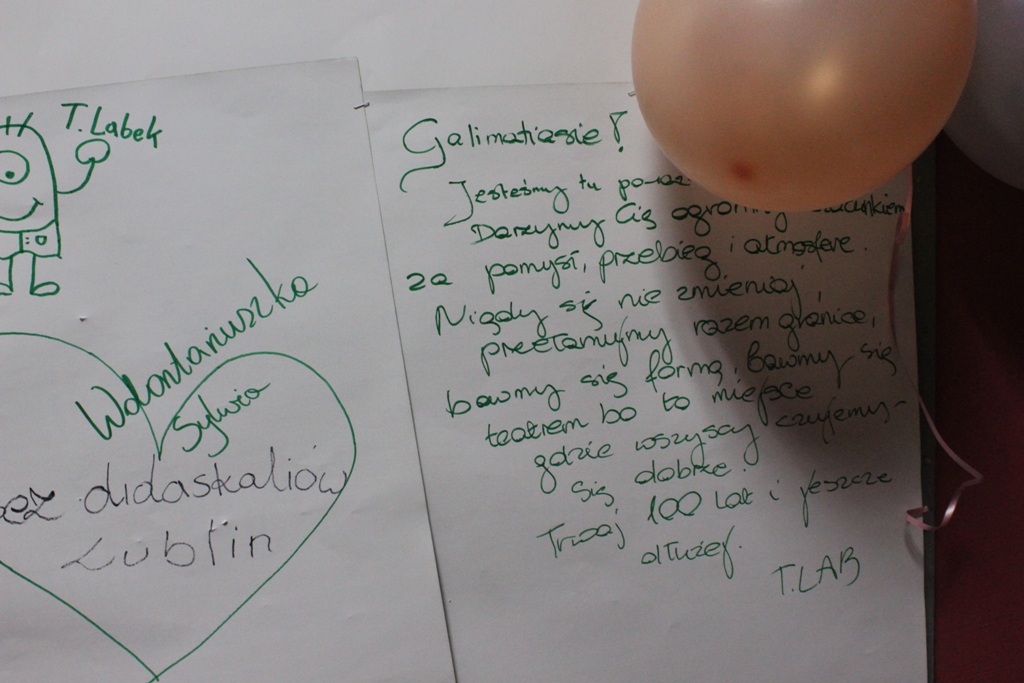 T.Labek
Wolontariuszka
Sylwia
bez didaskaliów
Lublin
Galimatiasie!
Jesteśmy tu po raz
Darzymy Cię ogromnym szacunkiem
za pomysł, przebieg i atmosferę.
Nigdy się nie zmieniaj,
przełamujmy razem granice,
bawmy się formą, bawmy się
teatrem bo to miejsce
gdzie wszyscy czujemy
się dobrze.
Trwaj 100 lat i jeszcze
dłużej.
T.LAB